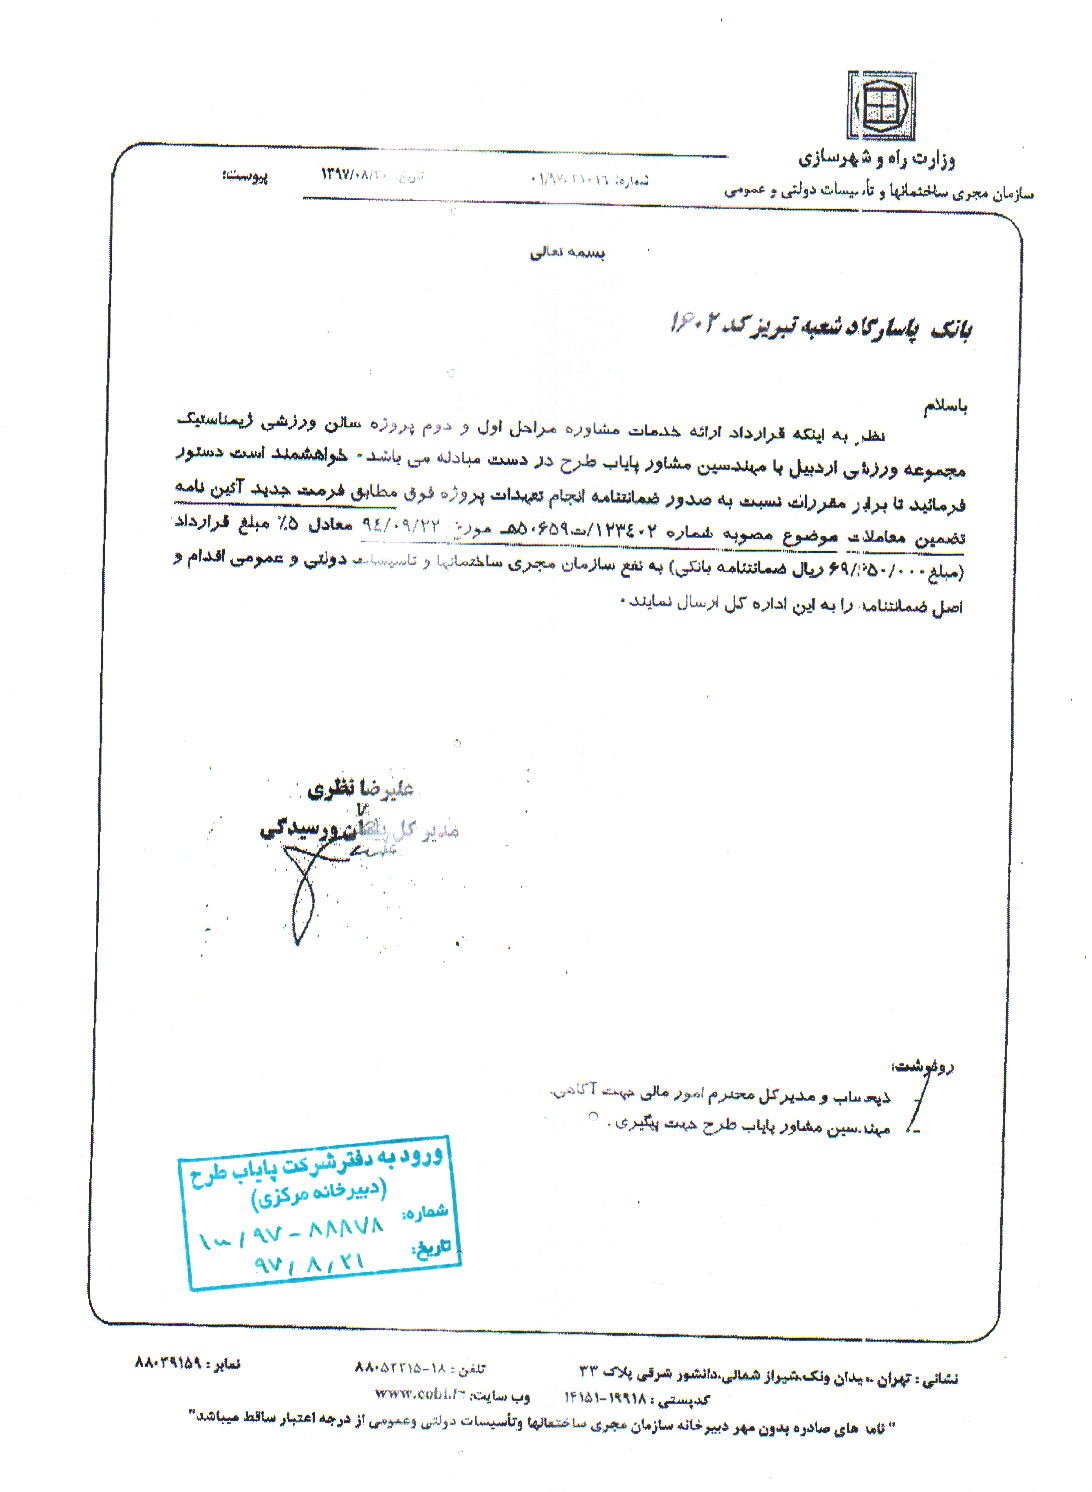 وزارت راه و شهرسازی
سازمان مجری ساختمانها و تأسیسات دولتی و عمومی
شماره:
تاریخ: ۱۳۹۷/۰۸/۲۰
پیوست:
بسمه تعالی
بانک پاسارگاد شعبه تبریز کد ۱۶۰۲
باسلام
نظر به اینکه قرارداد ارائه خدمات مشاوره مراحل اول و دوم پروژه سالن ورزشی ژیمناستیک
مجموعه ورزشی اردبیل با مهندسین مشاور پایاب طرح در دست مبادله می باشد. خواهشمند است دستور
فرمائید تا برابر مقررات نسبت به صدور ضمانتنامه انجام تعهدات پروژه فوق مطابق فرمت جدید آئین نامه
تضمین معاملات موضوع مصوبه شماره ۱۲۳٤۰۲/ت۵۰۶۵۹هـ مورخ ۹٤/۰۹/۲۲ معادل ۵% مبلغ قرارداد
(مبلغ ریال ضمانتنامه بانکی) به نفع سازمان مجری ساختمانها و تاسیسات دولتی و عمومی اقدام و
اصل ضمانتنامه را به این اداره کل ارسال نمایند.
علیرضا نظری
مدیر کل پیمان و رسیدگی
رونوشت:
- ذیحساب و مدیرکل محترم امور مالی جهت آگاهی.
- مهندسین مشاور پایاب طرح جهت پیگیری.
ورود به دفتر شرکت پایاب طرح
(دبیرخانه مرکزی)
شماره: ۸۸۸۷۸ - ۹۷ /
تاریخ: ۹۷/۸/۲۱
نشانی: تهران میدان ونک،شیراز شمالی،دانشور شرقی پلاک ۳۳
تلفن: ۱۸-۸۸۰۵۲۲۱۵
نمابر: ۸۸۰۳۹۱۵۹
کدپستی: ۱۹۹۱۸-۱۴۱۵۱
وب سایت:
"نامه های صادره بدون مهر دبیرخانه سازمان مجری ساختمانها وتأسیسات دولتی وعمومی از درجه اعتبار ساقط میباشد"